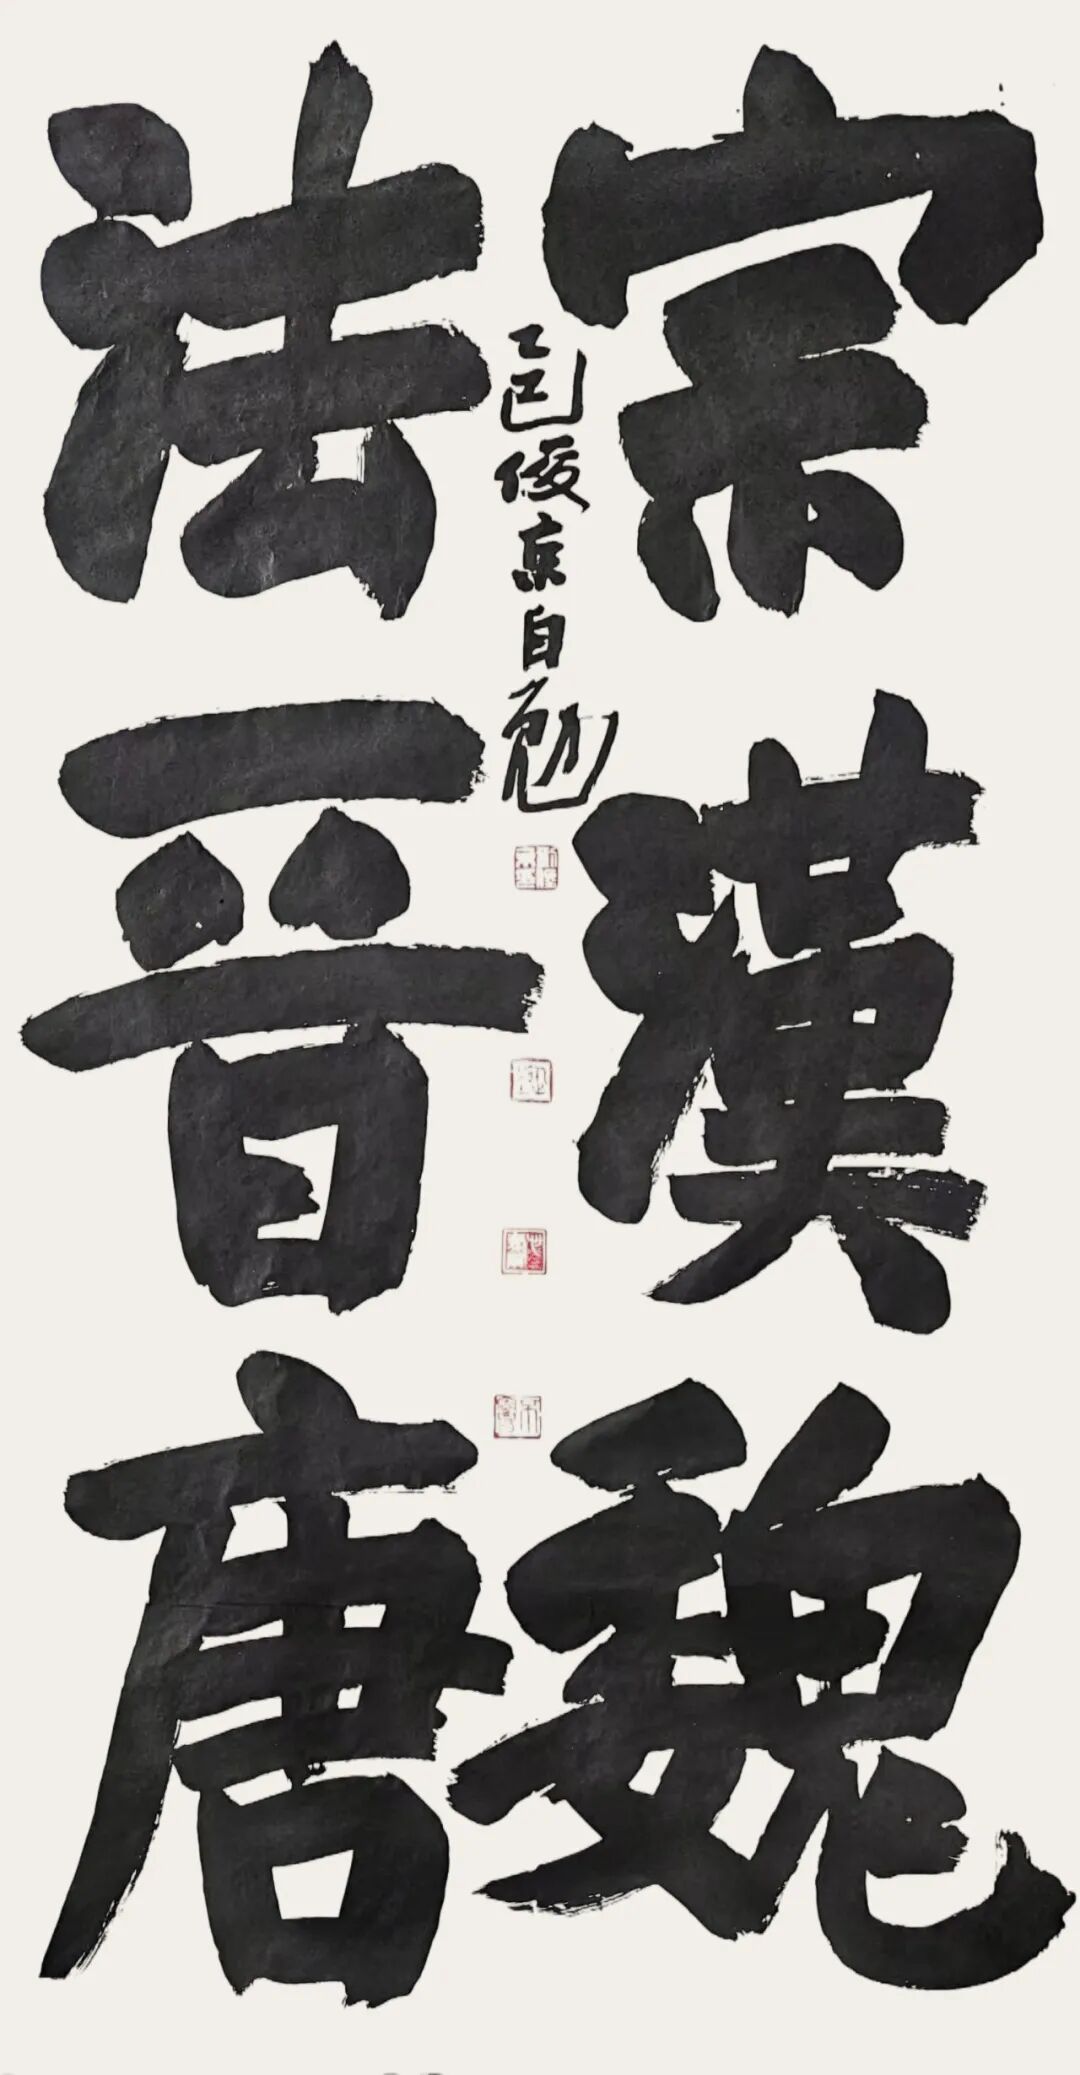 宗漢魏
法晉唐
乙巳俊京自勉